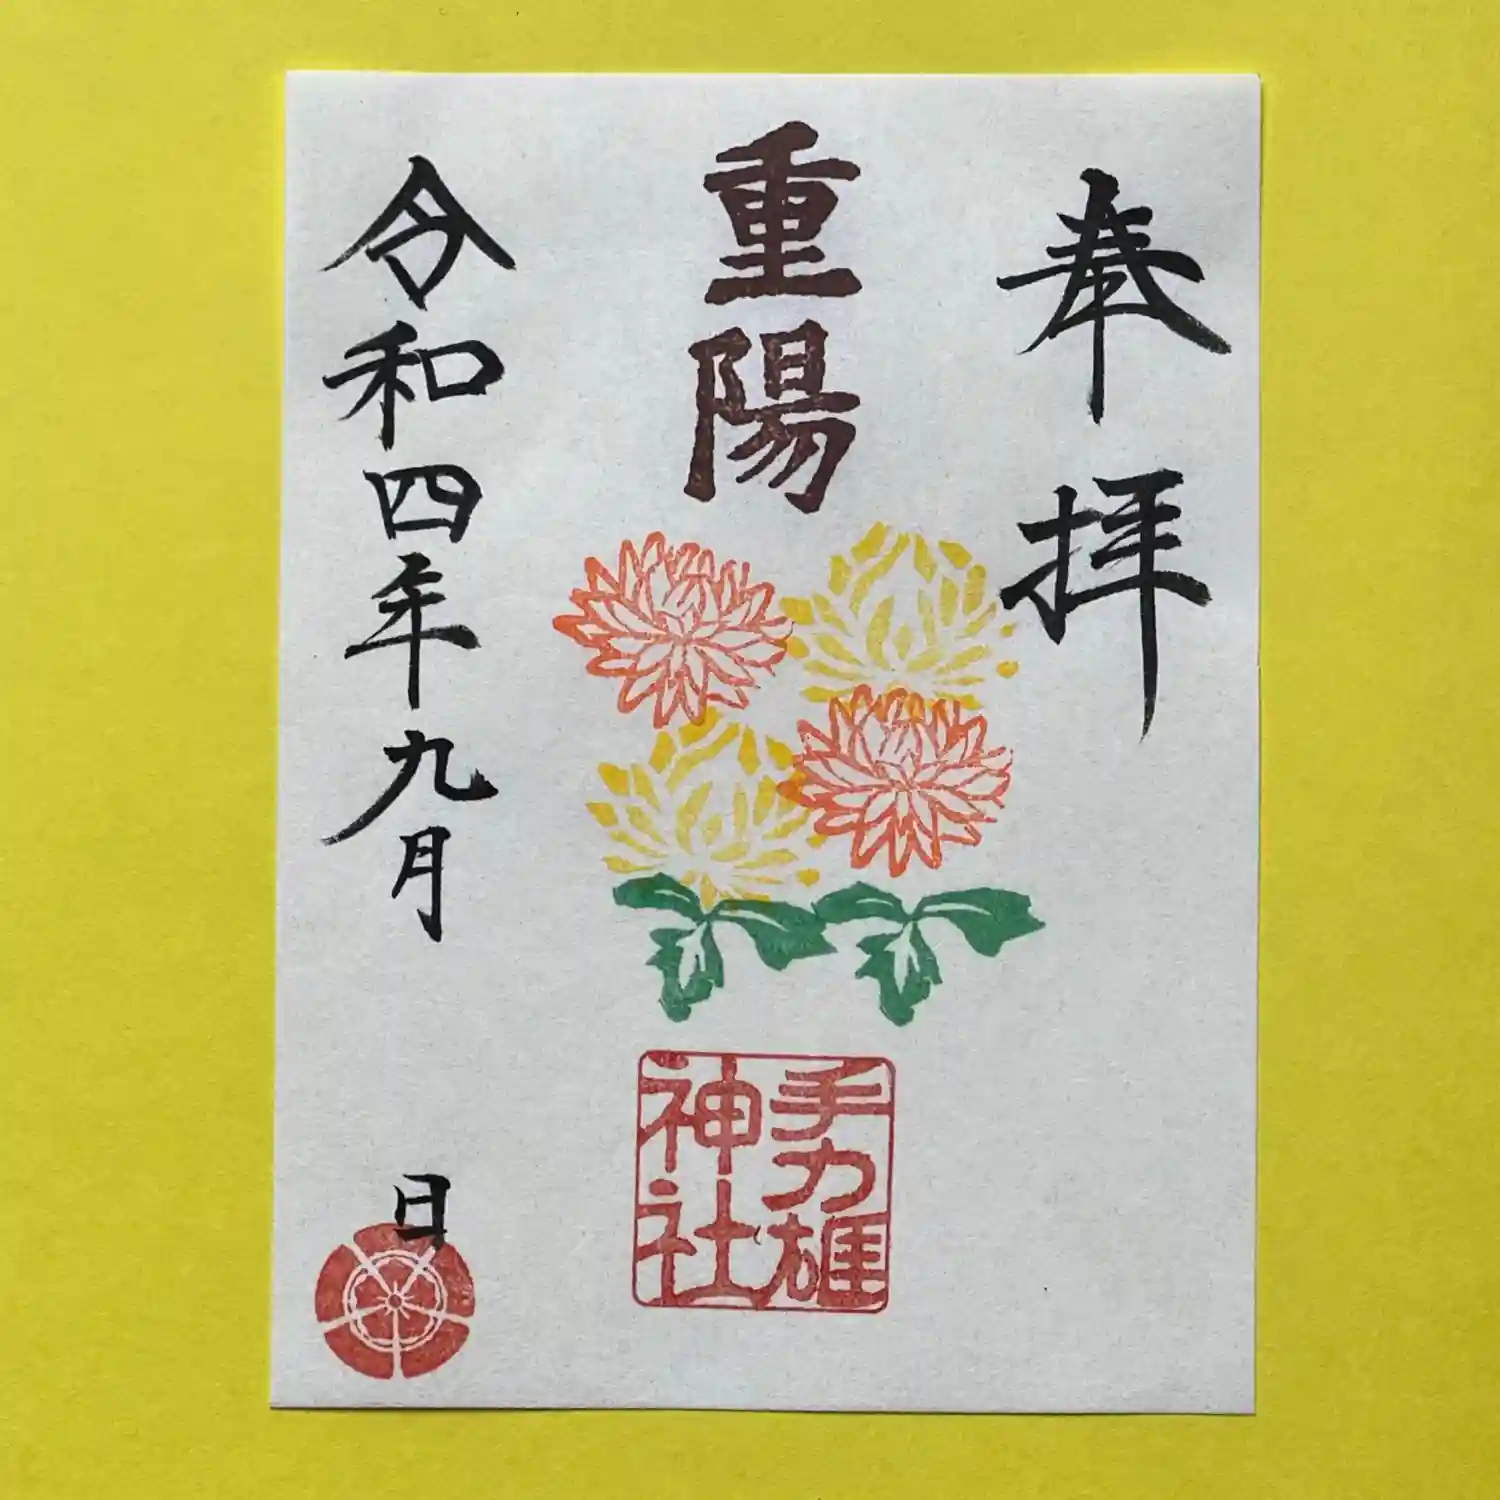 奉拝
重陽
手力雄
神社
令和四年九月 日